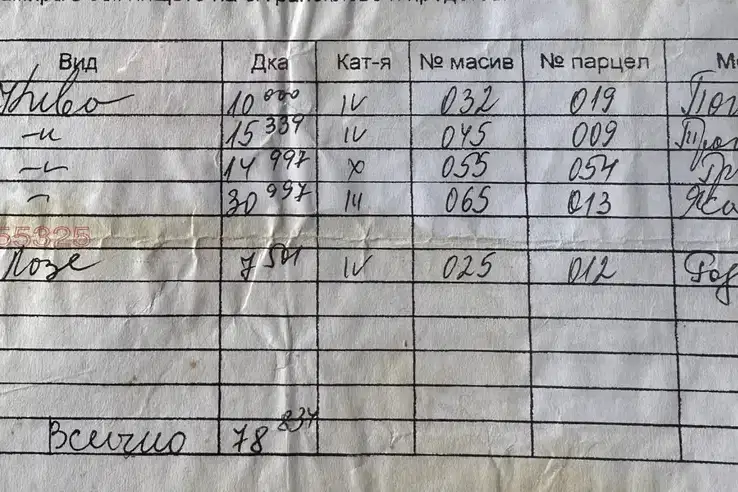 Вид Дка Кат-я № масив № парцел
Нива 10 000 IV 032 019
-"- 15 339 IV 045 009
-"- 14 997 X 055 054
-"- 30 997 III 065 013
55325
Лозе 7 501 IV 025 012
Всичко 78 834